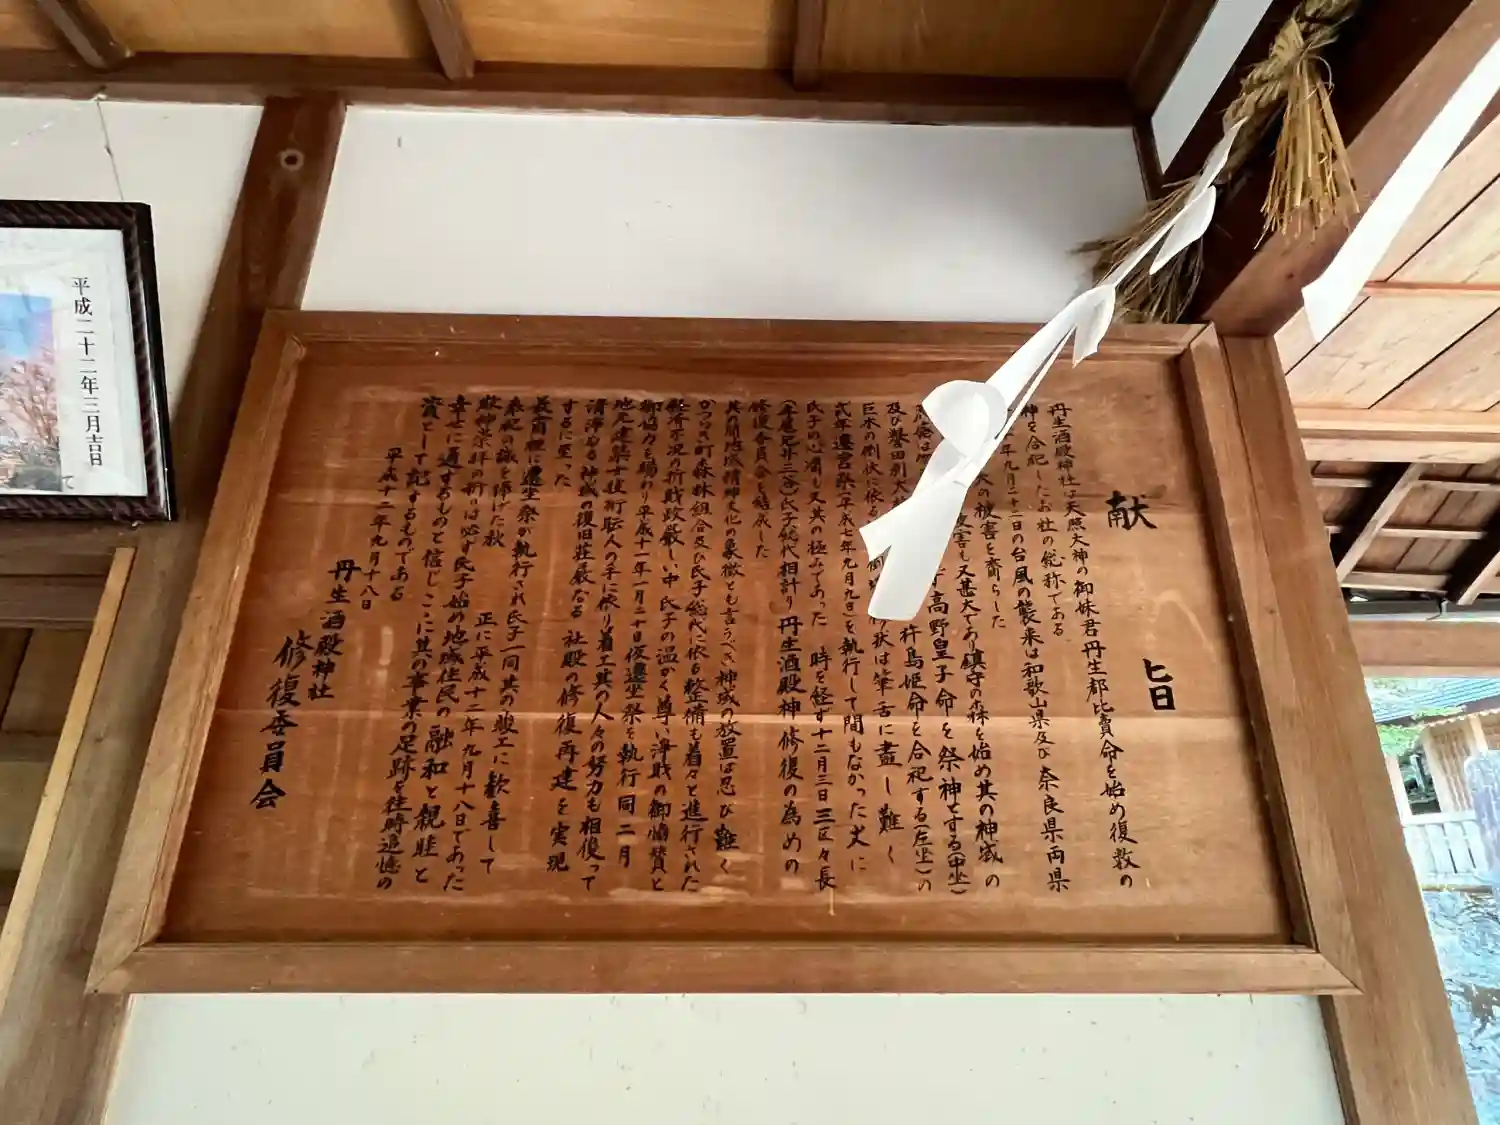 献 旨
丹生酒殿神社は天照大神の御妹君丹生都比賣命を始め復数の
神を合祀したお社の総称である
年九月二十二日の台風の襲来は和歌山県及び奈良県両県
大の被害を齎らした
被害も又甚大であり鎮守の森を始め其の神域の
高野皇子命を祭神とする(中坐)
及び誉田別 杵島姫命を合祀する(左坐)の
巨木の倒伏に依る 状は筆舌に盡し難く
式年遷宮祭(平成七年九月九日)を執行して間もなかった丈に
氏子の心濁も又其の極みであった 時を経す十二月三日三区々長
氏子総代相計り丹生酒殿神修復の為めの
修復委員会を結成した
其の間地域精神文化の象徴とも言うべき神域の放置は忍び難く
かつらぎ町森林組合及び氏子総代に依る整備も着々と進行された
経済不況の折財政厳しい中氏子の温かく尊い浄財の御懇賛と
御協力を賜わり平成十一年一月二十日仮遷坐祭を執行同二月
地元建築士技術職人の手に依り着工其の人々の努力も相俊って
清浄なる神域の復旧荘厳なる社殿の修復再建を実現
するに至った
最商裡に遷坐祭が執行され氏子一同其の竣工に歓喜して
奉祝の誠を捧げた秋 正に平成十二年九月十八日であった
敬神崇拝の祈りは必ず氏子始め地域住民の融和と親睦と
幸せに通ずるものと信じここに其の事業の足跡を往時追憶の
資として記するものである
平成十二年九月十八日
丹生酒殿神社
修復委員会
平成二十二年三月吉日
て